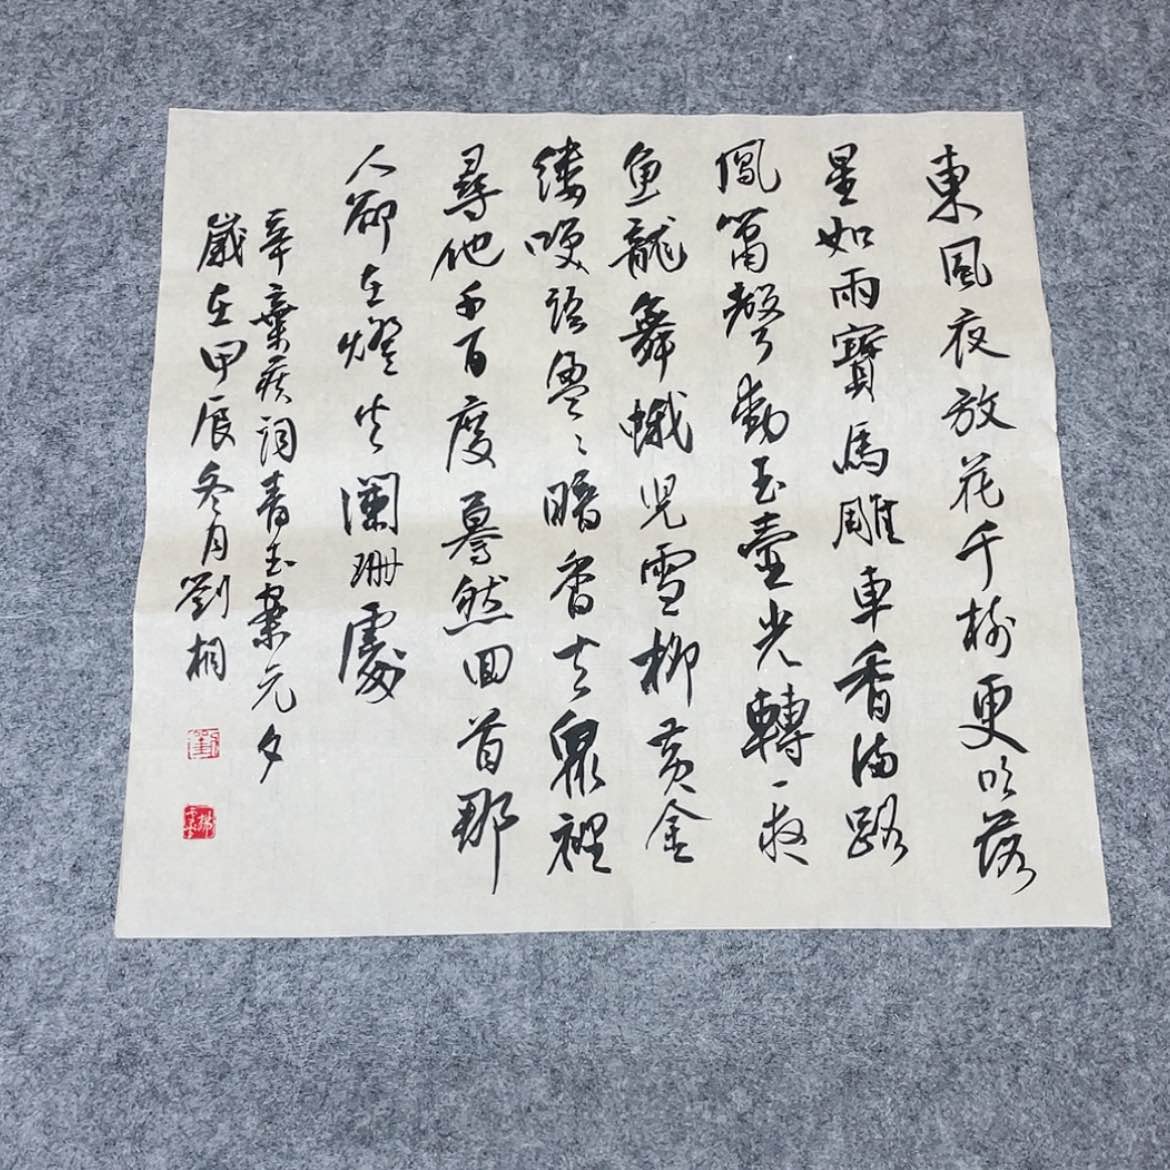 東風夜放花千樹更吹落
星如雨寶馬雕車香滿路
鳳簫聲動玉壺光轉一夜
魚龍舞蛾兒雪柳黃金
縷笑語盈〻暗香去眾裡
尋他千百度驀然回首那
人卻在燈火闌珊處
辛棄疾詞青玉案元夕
歲在甲辰冬月劉桐